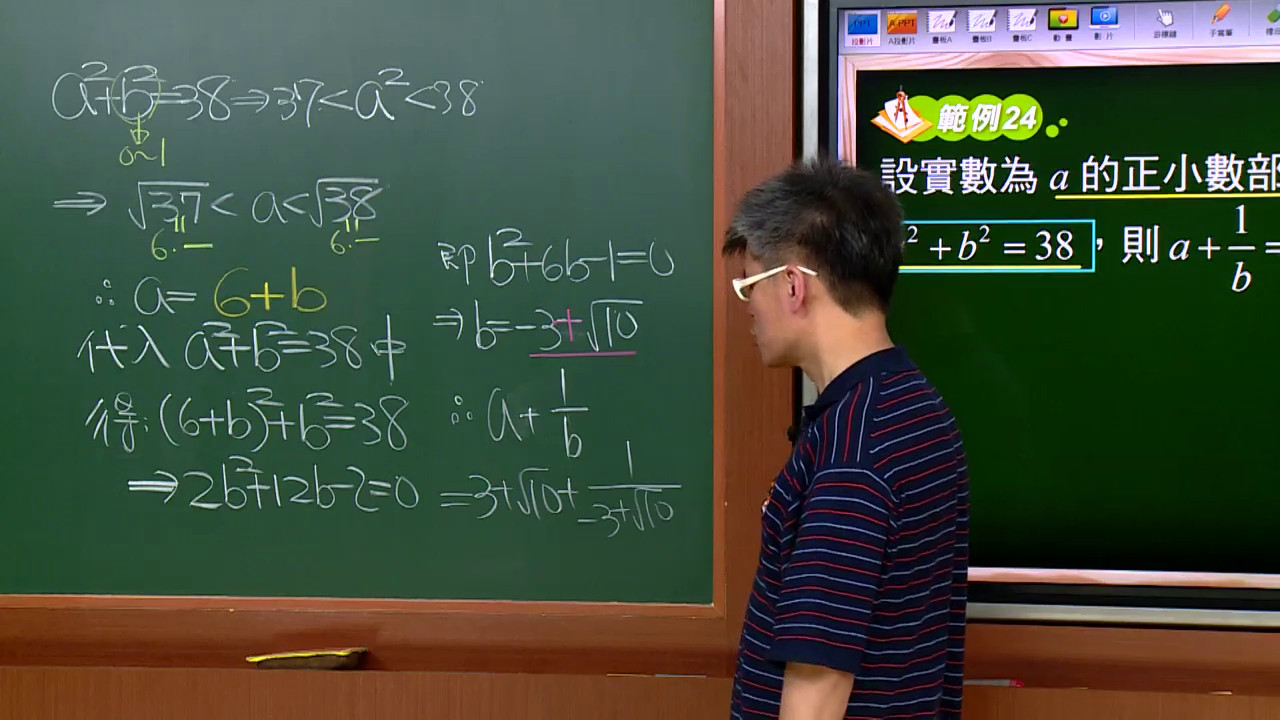 a²+b²=38⇒37<a²<38
0~1
⇒ √37 < a<√38
6.— 6.—
∴ a= 6+b
代入 a²+b²=38中
得:(6+b)²+b²=38
⇒2b²+12b-2=0
即 b²+6b-1=0
⇒b=-3+√10
∴ a+1/b
=3+√10+1/(-3+√10)
投影片 A投影片 畫板A 畫板B 畫板C 動畫 影片
範例24
設實數為 a 的正小數部
² + b² = 38,則 a + 1/b =